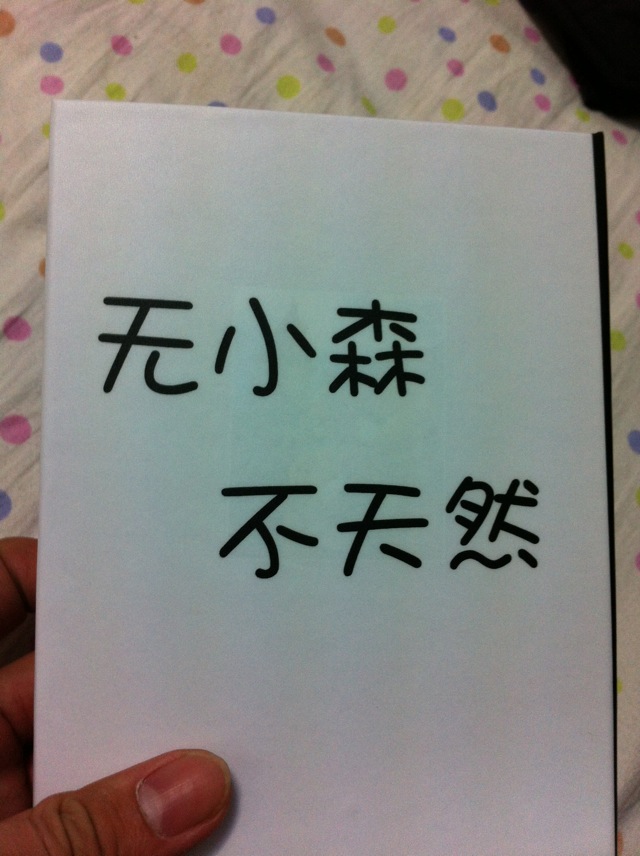 无小森
不天然